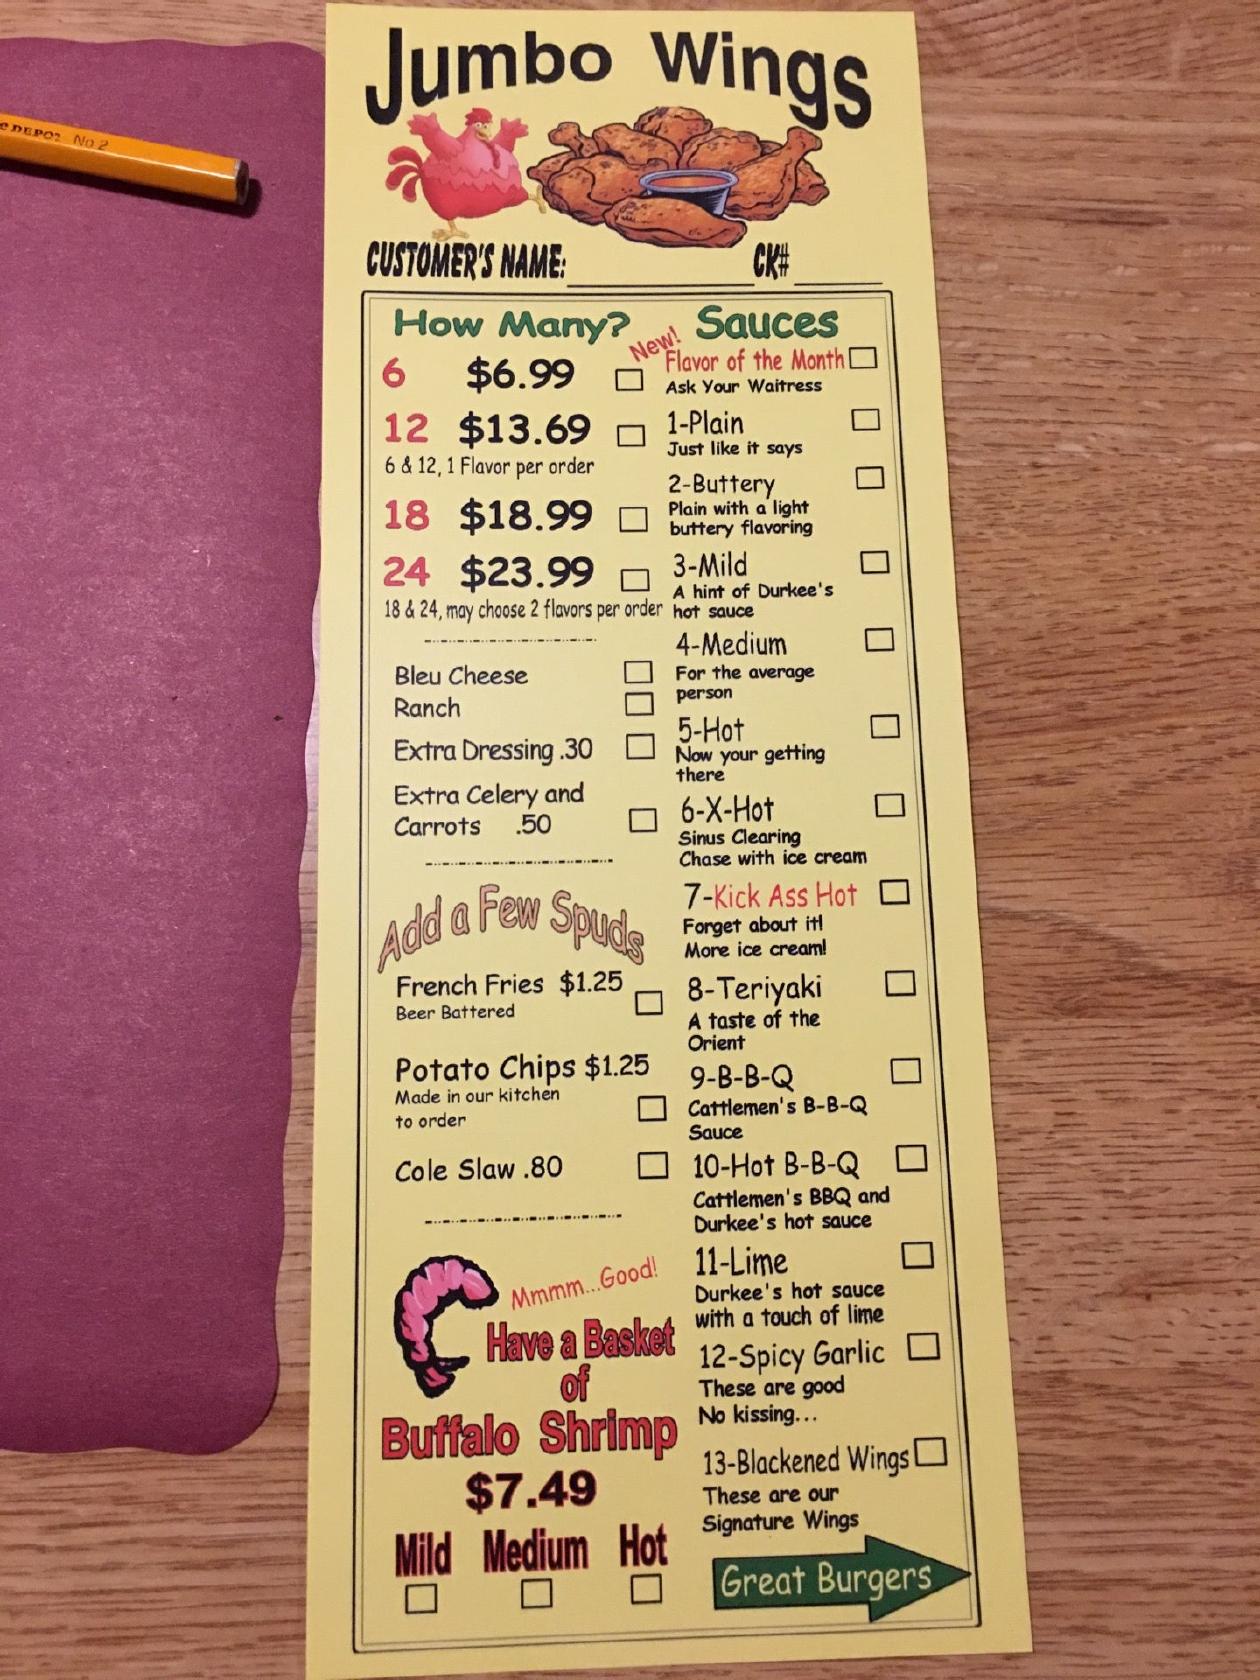 Jumbo Wings
CUSTOMER'S NAME: CK#
How Many?
6 $6.99
12 $13.69
6 & 12, 1 Flavor per order
18 $18.99
24 $23.99
18 & 24, may choose 2 flavors per order
Bleu Cheese
Ranch
Extra Dressing .30
Extra Celery and
Carrots .50
Add a Few Spuds
French Fries $1.25
Beer Battered
Potato Chips $1.25
Made in our kitchen
to order
Cole Slaw .80
Mmmm...Good!
Have a Basket
of
Buffalo Shrimp
$7.49
Mild Medium Hot
Sauces
New!
Flavor of the Month
Ask Your Waitress
1-Plain
Just like it says
2-Buttery
Plain with a light
buttery flavoring
3-Mild
A hint of Durkee's
hot sauce
4-Medium
For the average
person
5-Hot
Now your getting
there
6-X-Hot
Sinus Clearing
Chase with ice cream
7-Kick Ass Hot
Forget about it!
More ice cream!
8-Teriyaki
A taste of the
Orient
9-B-B-Q
Cattlemen's B-B-Q
Sauce
10-Hot B-B-Q
Cattlemen's BBQ and
Durkee's hot sauce
11-Lime
Durkee's hot sauce
with a touch of lime
12-Spicy Garlic
These are good
No kissing...
13-Blackened Wings
These are our
Signature Wings
Great Burgers
DEPOT No 2